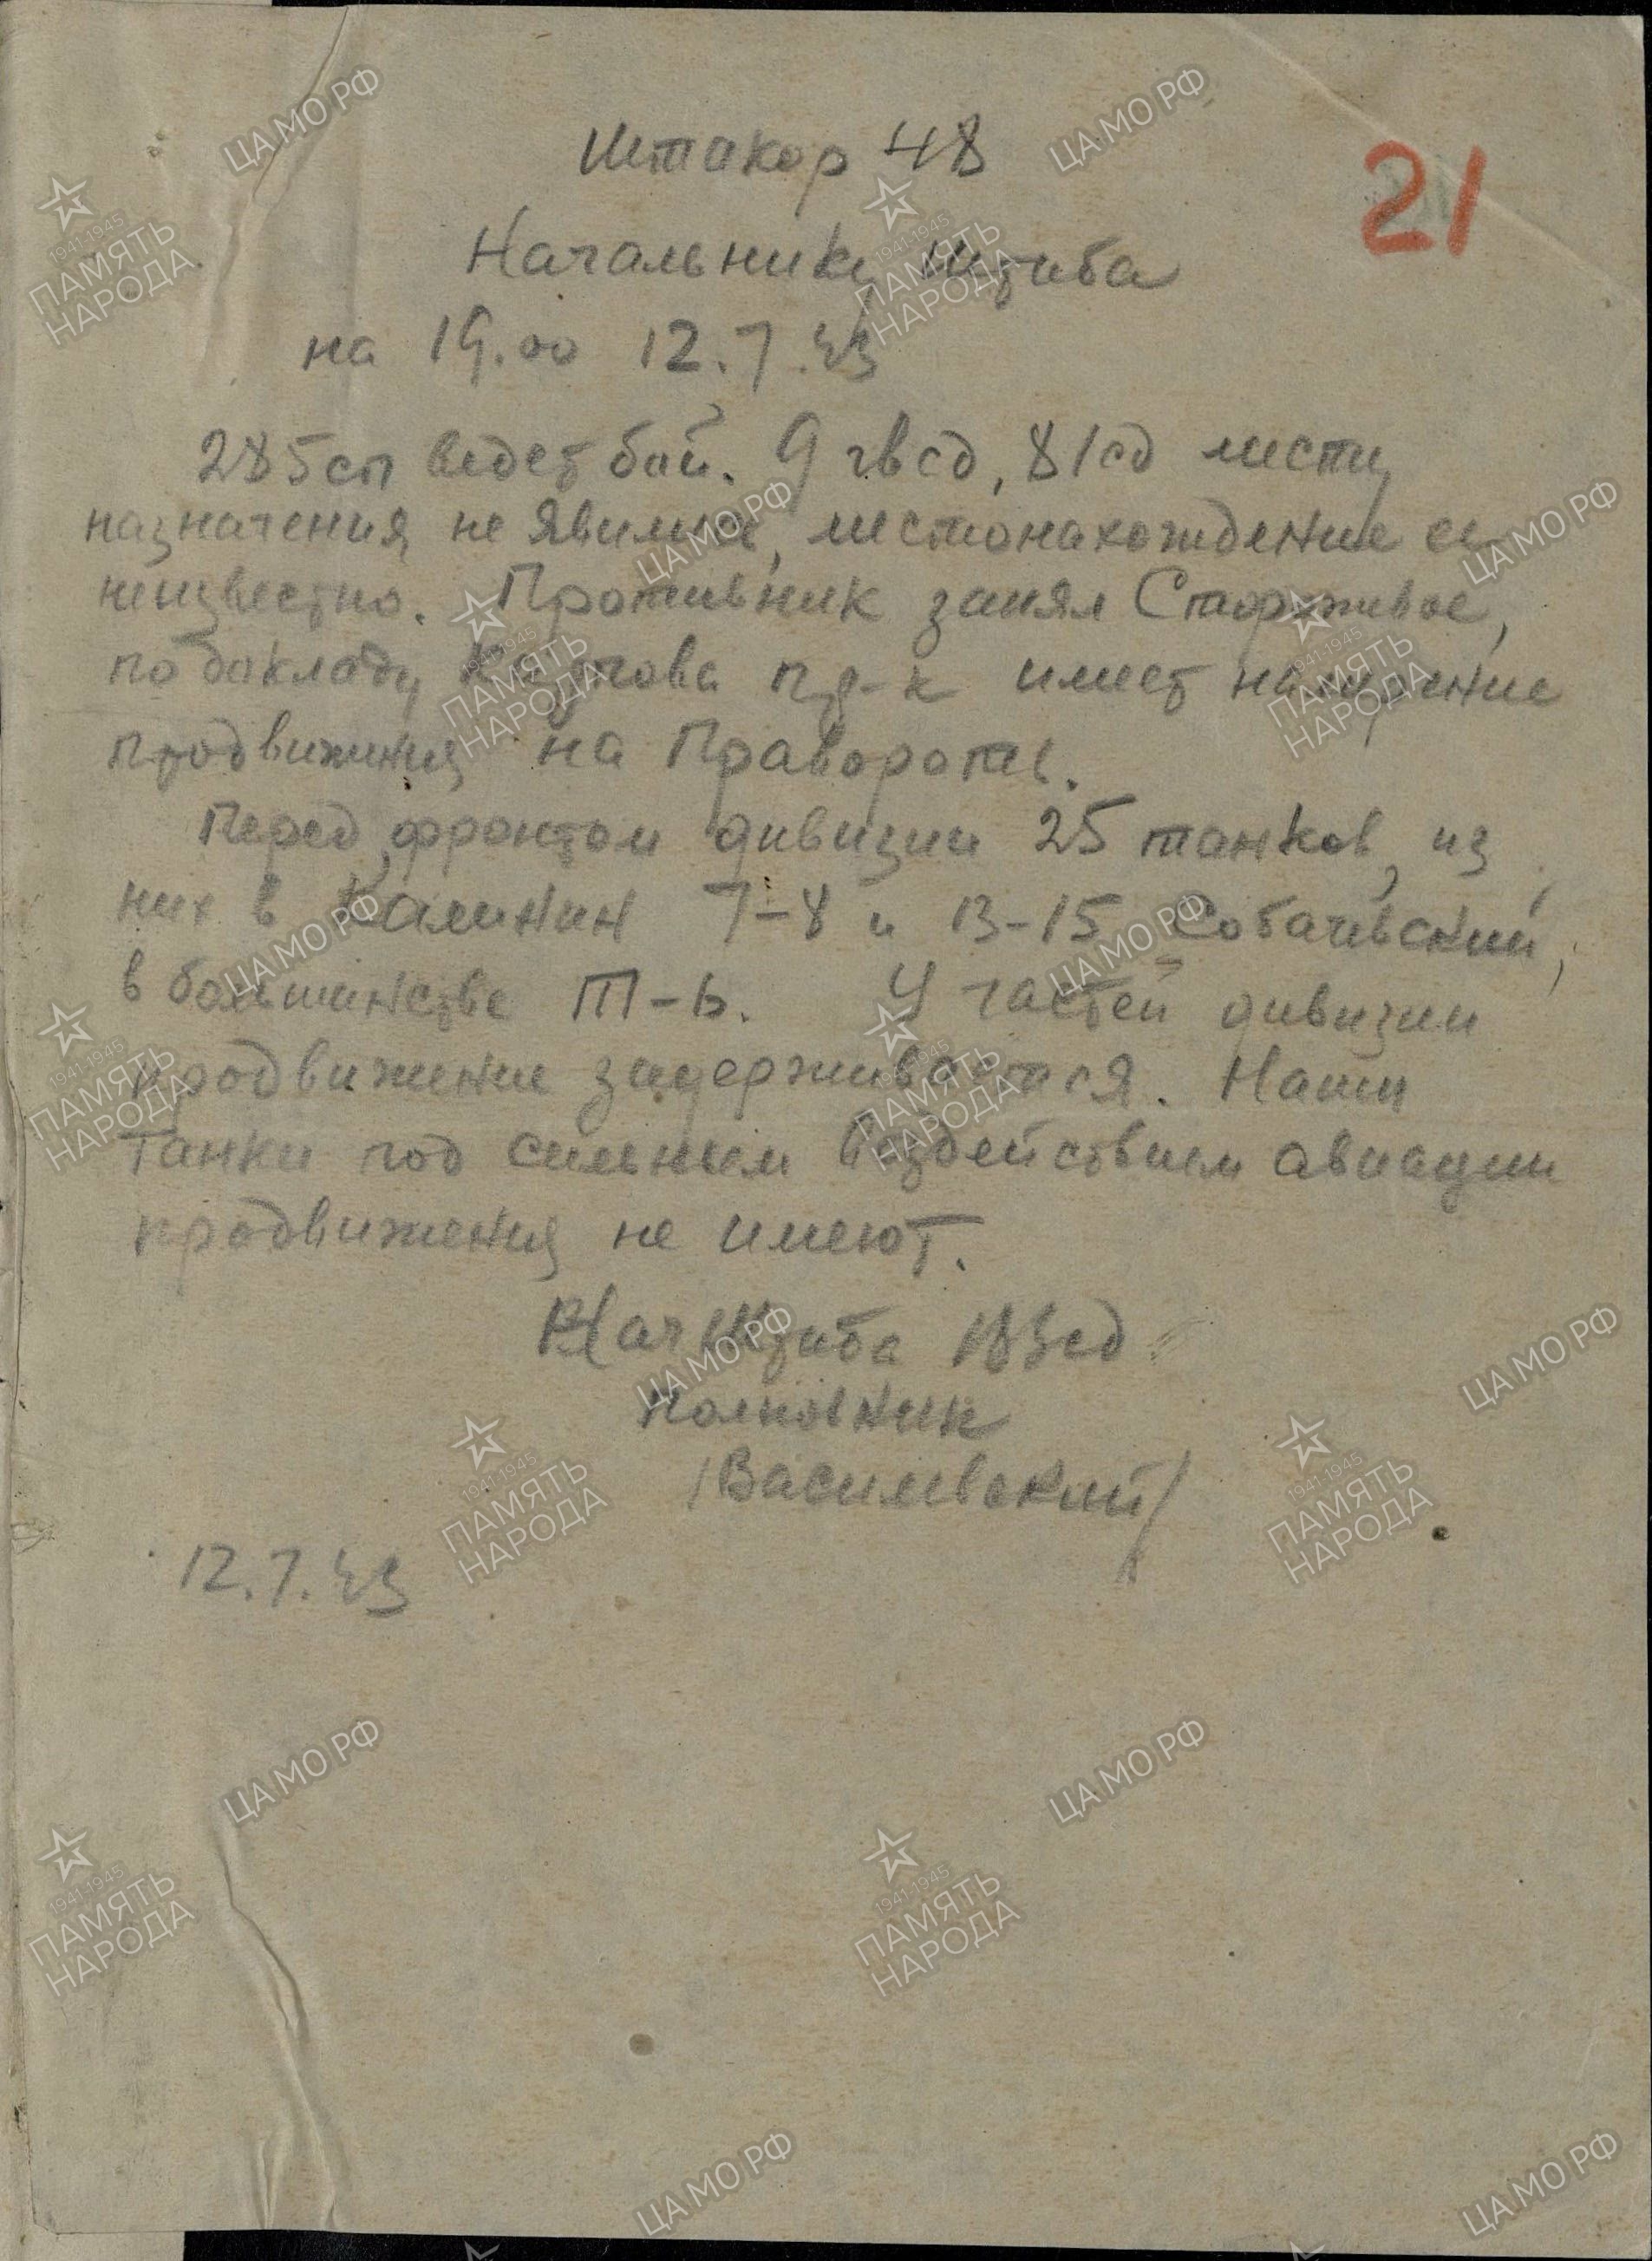 Штакор 48
21
Начальнику штаба
на 19.00 12.7.43
285сп ведет бой. 9 гвсд, 81сд месту
назначения не явились, местонахождение ее
неизвестно. Противник занял Сторожевое,
по докладу Карпова пр-к имеет намерение
продвижения на Правороть.
Перед фронтом дивизии 25 танков, из
них в Калинин 7-8 и 13-15 Собачевский,
в большинстве Т-6. У частей дивизии
продвижение задерживается. Наши
танки под сильным воздействием авиации
продвижения не имеют.
Нач штаба 183сд
полковник
/Василевский/
12.7.43
ЦАМО РФ
1941-1945
ПАМЯТЬ
НАРОДА